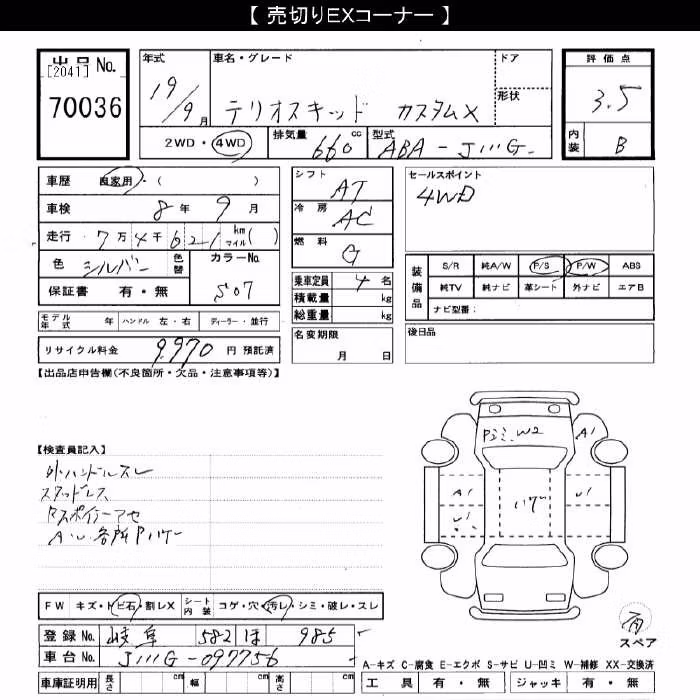 【 売切りEXコーナー 】
出品 No.
[2041]
70036
年式
19/9月
車名・グレード
テリオスキッド カスタムX
ドア
形状
評価点
3.5
内装
B
2WD・4WD
排気量
660 cc
型式
ABA-J111G
車歴 自家用・( )
車検 8年 9月
走行 7万4千621 km マイル( )
色 シルバー 色替
カラーNo.
S07
保証書 有・無
シフト
AT
冷房
AC
燃料
G
乗車定員 4名
積載量 kg
総重量 kg
セールスポイント
4WD
装備品
S/R 純A/W P/S P/W ABS
純TV 純ナビ 革シート 外ナビ エアB
ナビ型番:
モデル年式 年 ハンドル 左・右 ディーラー・並行
リサイクル料金 9,970 円 預託済
名変期限
月 日
後日品
【出品店申告欄(不良箇所・欠品・注意事項等)】
【検査員記入】
外ハンドルスレ
スタッドレス
A・U 各所Pハゲ
W2
A1
A1
U1
FW キズ・トビ石・割レX シート内装 コゲ・穴・汚レ・シミ・破レ・スレ
登録No. 岐阜 582 ほ 985
車台No. J111G-097756
車庫証明用 長さ cm 幅 cm 高さ cm
スペア
A-キズ C-腐食 E-エクボ S-サビ U-凹ミ W-補修 XX-交換済
工具 有・無 ジャッキ 有・無